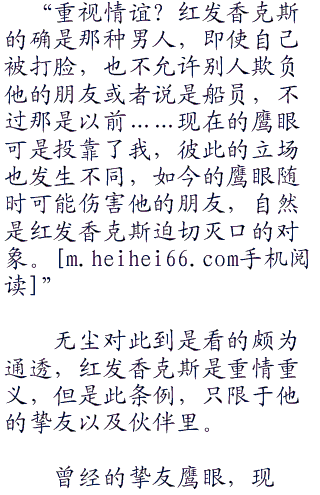 “重视情谊？红发香克斯
的确是那种男人，即使自己
被打脸，也不允许别人欺负
他的朋友或者说是船员，不
过那是以前……现在的鹰眼
可是投靠了我，彼此的立场
也发生不同，如今的鹰眼随
时可能伤害他的朋友，自然
是红发香克斯迫切灭口的对
象。[m.heihei66.com手机阅
读]”
无尘对此到是看的颇为
通透，红发香克斯是重情重
义，但是此条例，只限于他
的挚友以及伙伴里。
曾经的挚友鹰眼，现